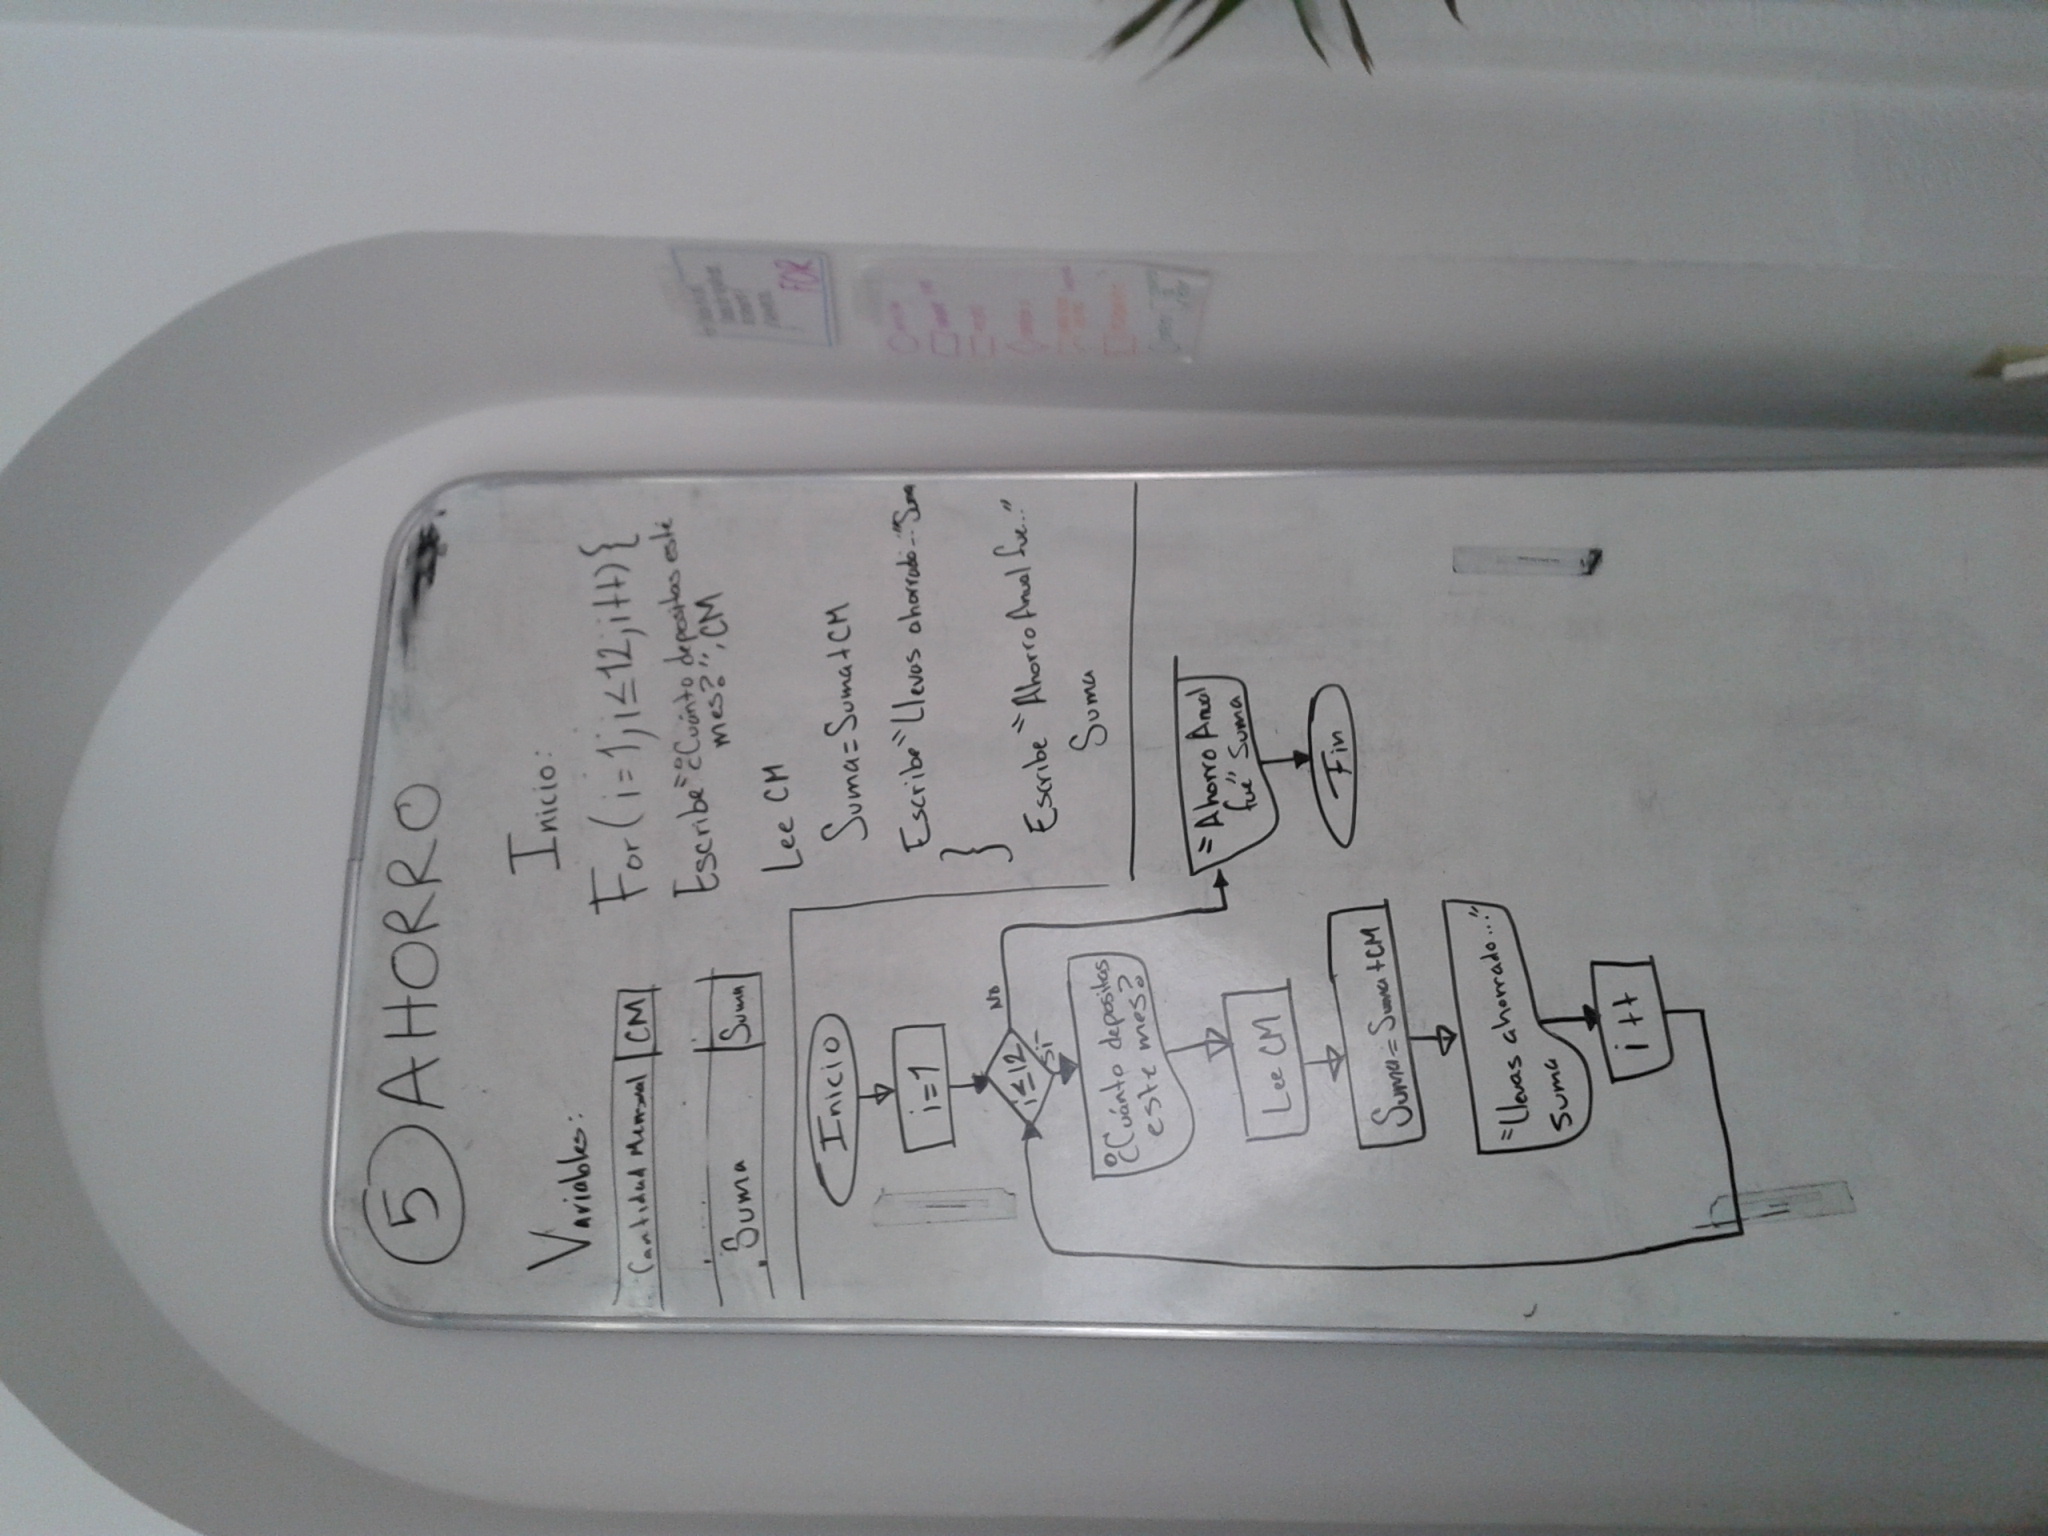 5 AHORRO
Variables:
Cantidad Mensual CM
Suma Suma
Inicio
i=1
i≤12
No
Si
¿Cuánto depositas
este mes?
Lee CM
Suma=Suma+CM
"Llevas ahorrado..."
suma
i++
Inicio:
For(i=1;i≤12;i++){
Escribe "¿Cuánto depositas este
mes?", CM
Lee CM
Suma=Suma+CM
Escribe "Llevas ahorrado..." Suma
}
Escribe "Ahorro Anual fue..."
Suma
"Ahorro Anual
fue" Suma
Fin
FOR